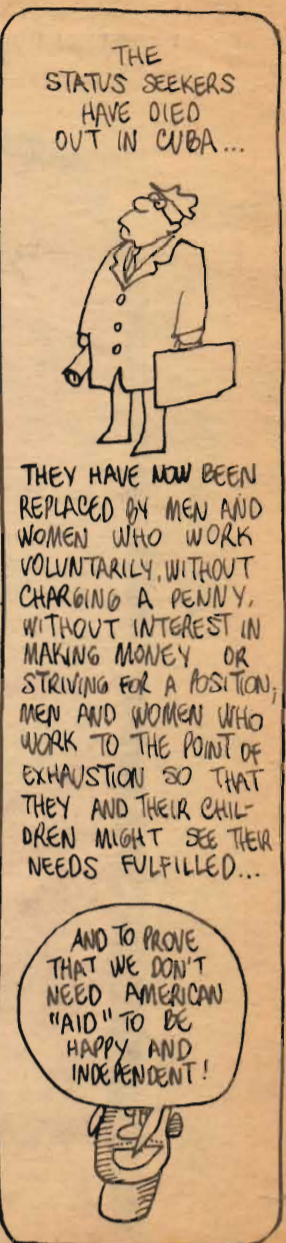 THE
STATUS SEEKERS
HAVE DIED
OUT IN CUBA...
THEY HAVE NOW BEEN
REPLACED BY MEN AND
WOMEN WHO WORK
VOLUNTARILY, WITHOUT
CHARGING A PENNY,
WITHOUT INTEREST IN
MAKING MONEY OR
STRIVING FOR A POSITION;
MEN AND WOMEN WHO
WORK TO THE POINT OF
EXHAUSTION SO THAT
THEY AND THEIR CHIL-
DREN MIGHT SEE THEIR
NEEDS FULFILLED...
AND TO PROVE
THAT WE DON'T
NEED AMERICAN
"AID" TO BE
HAPPY AND
INDEPENDENT!